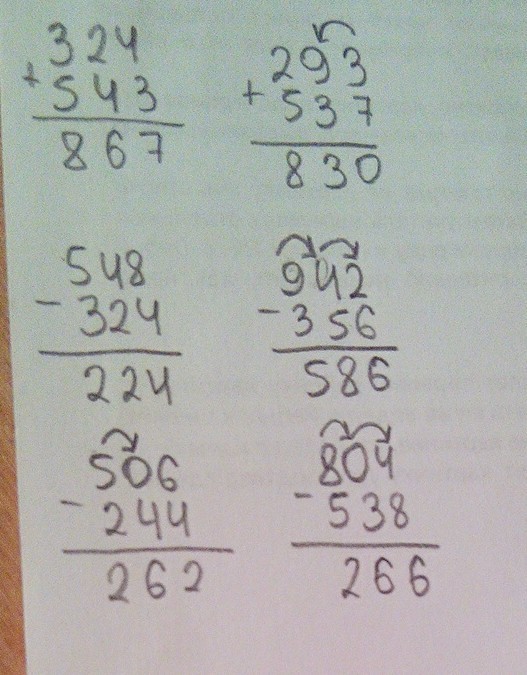 324
+ 543
867
293
+ 537
830
548
- 324
224
942
- 356
586
506
- 244
262
804
- 538
266